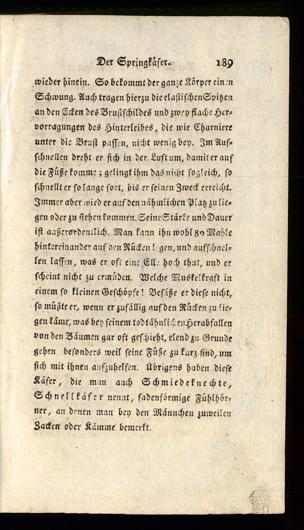 Der Springkäfer. 189
wieder hinein. So bekommt der ganze Körper einen
Schwung. Auch tragen hierzu die elastischen Spitzen
an den Ecken des Brustschildes und zwey flache Her-
vorragungen des Hinterleibes, die wie Charniere
unter die Brust passen, nicht wenig bey. Im Auf-
schnellen dreht er sich in der Luft um, damit er auf
die Füße komme; gelingt ihm das nicht sogleich, so
schnellt er so lange fort, bis er seinen Zweck erreicht.
Immer aber wird er auf den nähmlichen Platz zu lie-
gen oder zu stehen kommen. Seine Stärke und Dauer
ist außerordentlich. Man kann ihn wohl 80 Mahle
hintereinander auf den Rücken legen, und aufschnel-
len lassen, was er oft eine Elle hoch thut, und er
scheint nicht zu ermüden. Welche Muskelkraft in
einem so kleinen Geschöpfe! Besäße er diese nicht,
so müßte er, wenn er zufällig auf den Rücken zu lie-
gen käme, was bey seinem todtähnlichen Herabfallen
von den Bäumen gar oft geschieht, elend zu Grunde
gehen besonders weil seine Füße zu kurz sind, um
sich mit ihnen aufzuhelfen. Übrigens haben diese
Käfer, die man auch Schmiedeknechte,
Schnellkäfer nennt, fadenförmige Fühlhör-
ner, an denen man bey den Männchen zuweilen
Zacken oder Kämme bemerkt.